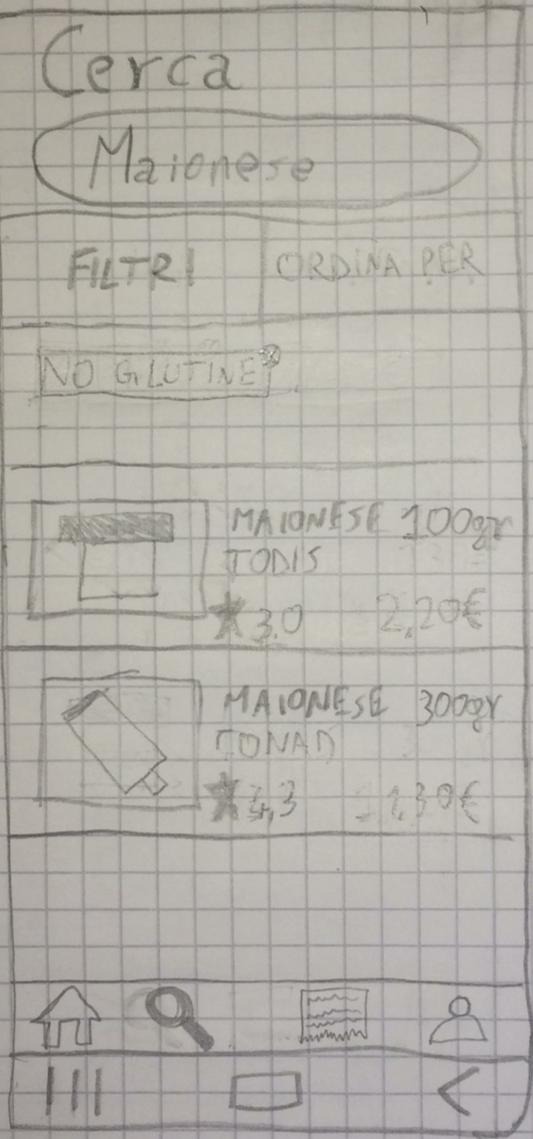 Cerca
Maionese
FILTRI ORDINA PER
NO GLUTINE
MAIONESE 100gr
TODIS
3.0 2,20€
MAIONESE 300gr
CONAD
4,3 1,30€